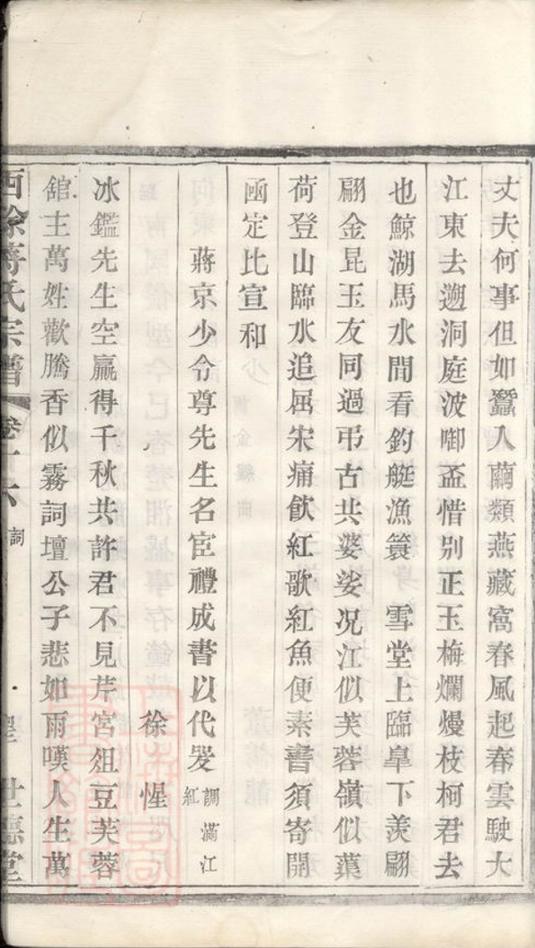 丈夫何事但如蠶入繭類燕藏窩春風起春雲駛大
江東去遡洞庭波啣盃惜別正玉梅爛熳枝柯君去
也鯨湖馬水間看釣艇漁簑　雪堂上臨臯下羨翩
翩金昆玉友同過弔古共婆娑况江似芙蓉嶺似葉
荷登山臨水追屈宋痛飲紅歌紅魚便素書須寄開
函定比宣和
蔣京少令尊先生名宦禮成書以代叟 調滿江紅
徐惺
冰鑑先生空贏得千秋共許君不見芹宮俎豆芙蓉
舘主萬姓歡騰香似霧詞壇公子悲如雨嘆人生萬
西徐蔣氏宗譜 卷十六 詞 世德堂